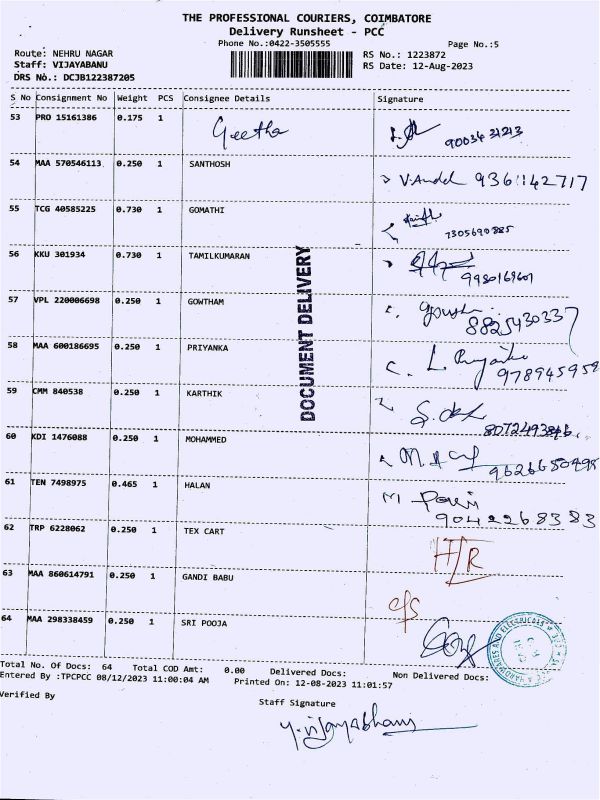 THE PROFESSIONAL COURIERS, COIMBATORE
Delivery Runsheet - PCC
Phone No.:0422-3505555
Page No.:5
Route: NEHRU NAGAR
RS No.: 1223872
Staff: VIJAYABANU
RS Date: 12-Aug-2023
DRS No.: DCJB122387205
S No Consignment No Weight PCS Consignee Details Signature
53 PRO 15161386 0.175 1 Geetha
9003431213
54 MAA 570546113 0.250 1 SANTHOSH
9361142717
55 TCG 40585225 0.730 1 GOMATHI
7305690885
56 KKU 301934 0.730 1 TAMILKUMARAN
9980169601
57 VPL 220006698 0.250 1 GOWTHAM
8825430337
58 MAA 600186695 0.250 1 PRIYANKA
L. Priyanka
978945959
59 CMM 840538 0.250 1 KARTHIK
60 KDI 1476088 0.250 1 MOHAMMED
9626650495
61 TEN 7498975 0.465 1 HALAN
9042268383
62 TRP 6228062 0.250 1 TEX CART
63 MAA 860614791 0.250 1 GANDI BABU
64 MAA 298338459 0.250 1 SRI POOJA
DOCUMENT DELIVERY
Total No. Of Docs: 64 Total COD Amt: 0.00 Delivered Docs: Non Delivered Docs:
Entered By :TPCPCC 08/12/2023 11:00:04 AM Printed On: 12-08-2023 11:01:57
Verified By
Staff Signature